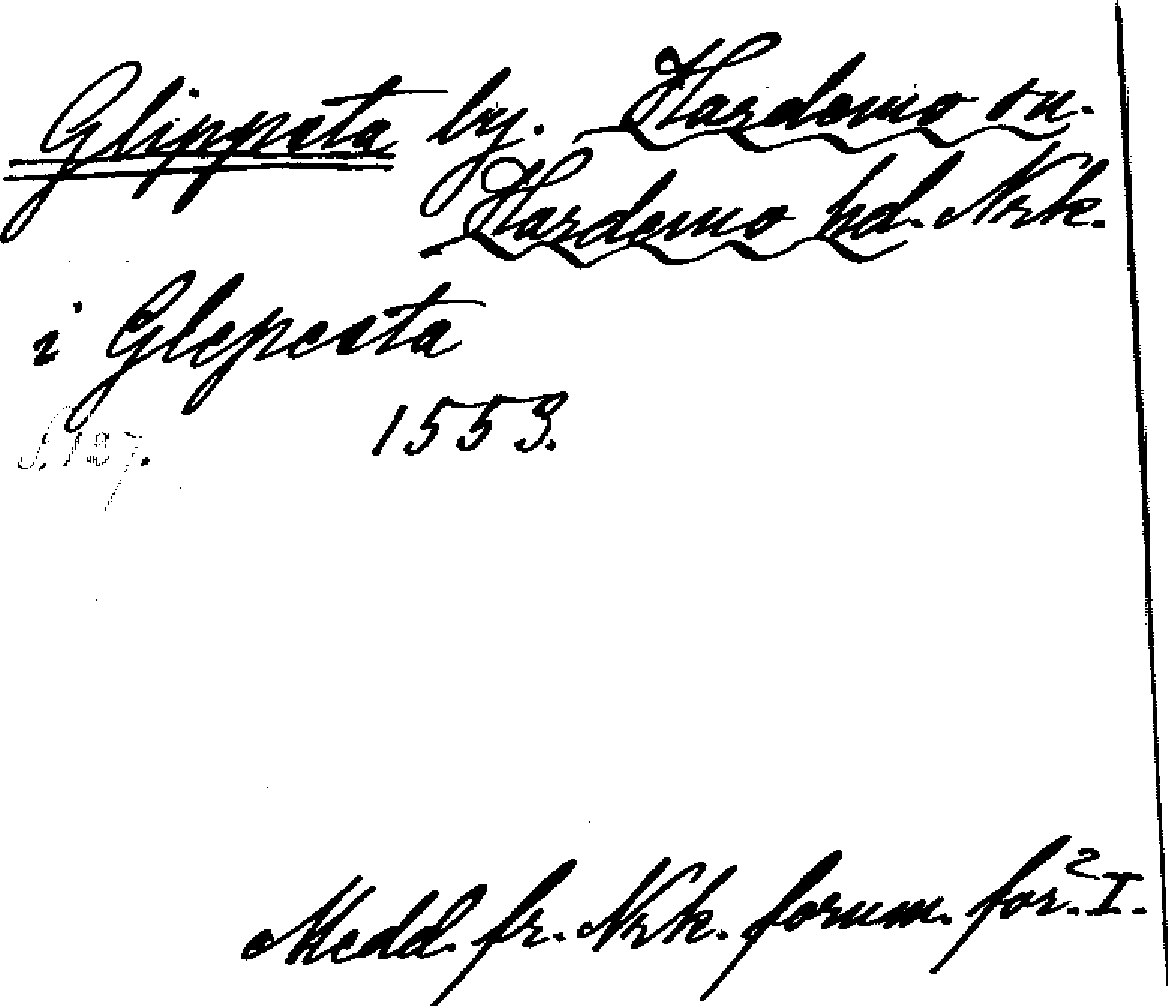 Glippsta by. Hardemo sn.
Hardemo hd. Nrk.
i Glepesta
S. 187. 1553.
Medd. fr. Nrk. fornm. för.² I.